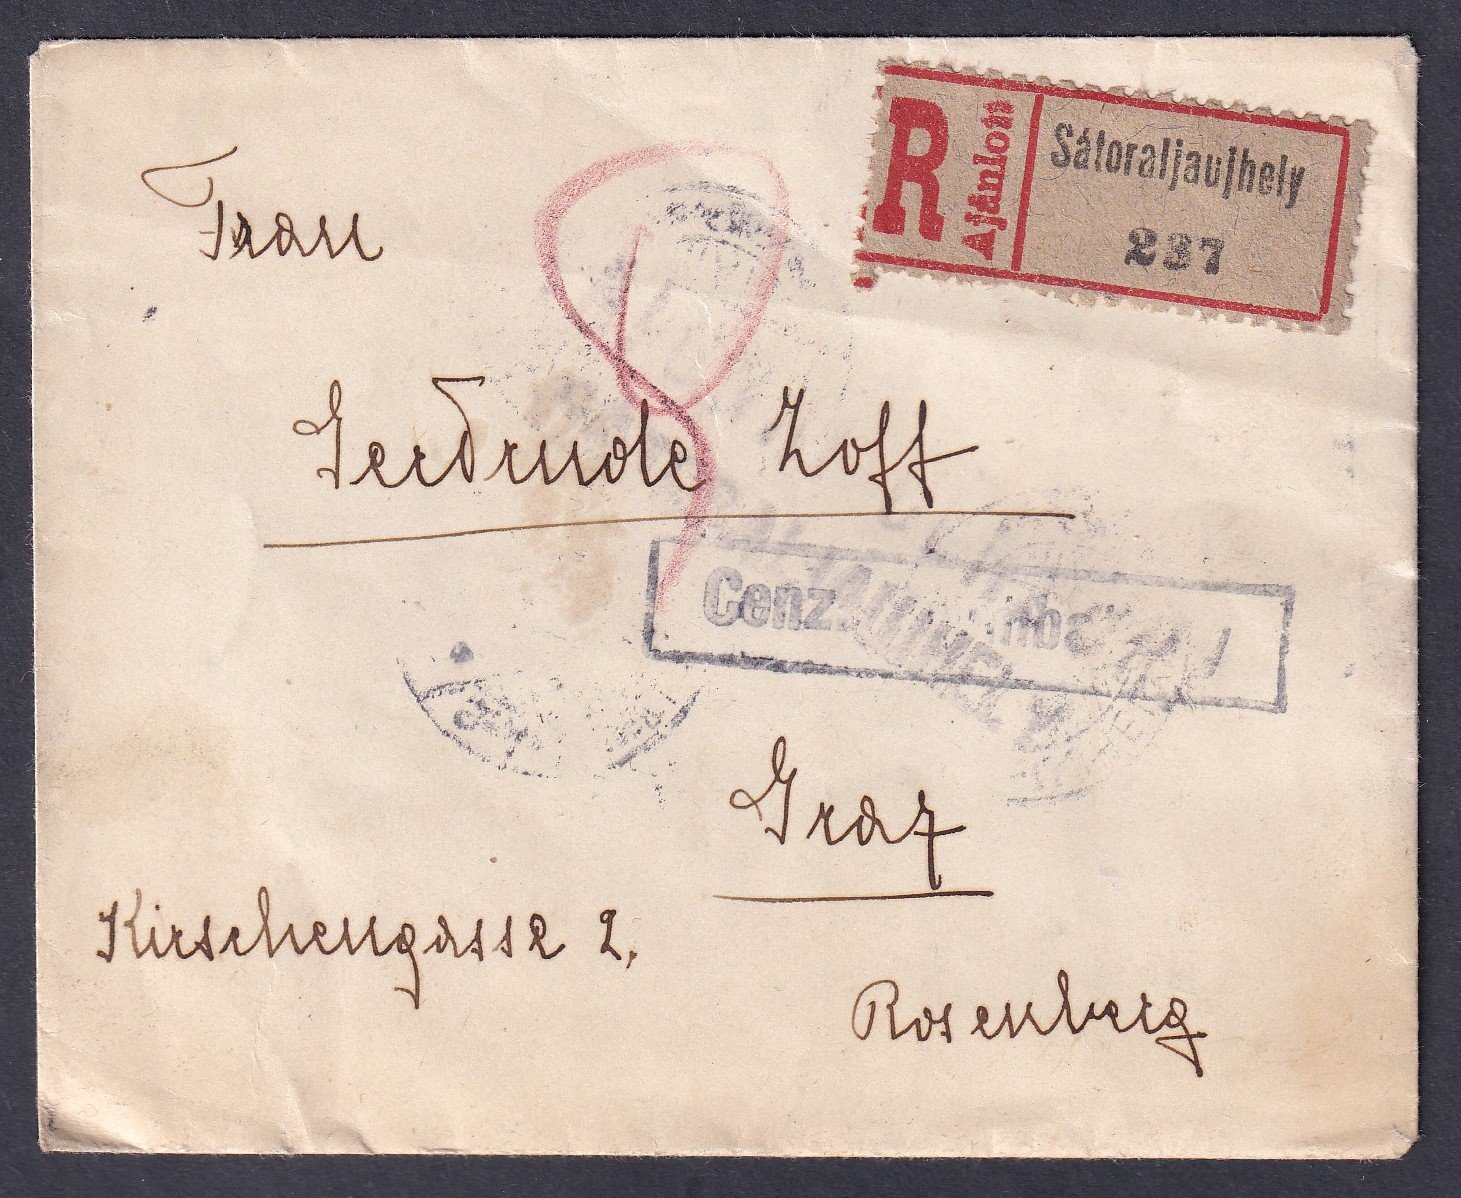 R Ajánlott
Sátoraljaujhely
237
Frau
Gerdrude Zoff
Cenz.
Graz
Kirschengasse 2.
Rosenberg